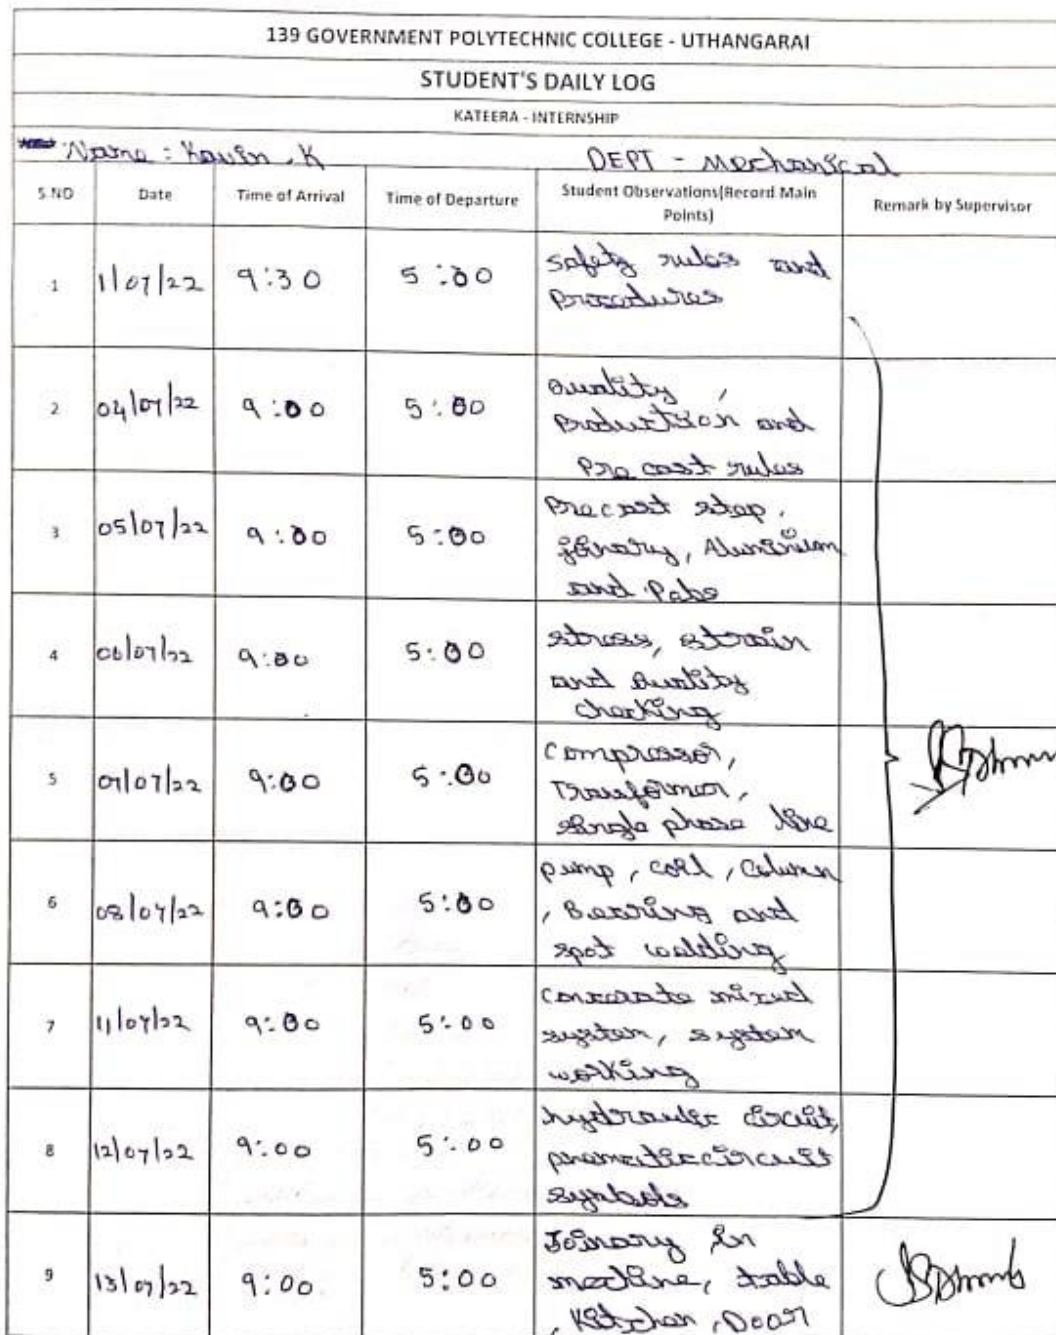 139 GOVERNMENT POLYTECHNIC COLLEGE - UTHANGARAI
STUDENT'S DAILY LOG
KATEERA - INTERNSHIP
Name : Kavin . K DEPT - Mechanical
S.NO Date Time of Arrival Time of Departure Student Observations(Record Main Points) Remark by Supervisor
1 1/07/22 9:30 5:00 safety rules and
procedures
2 04/07/22 9:00 5:00 Quality ,
production and
Pre cast rules
3 05/07/22 9:00 5:00 Precast step,
joinary, Aluminium
and Pabs
4 06/07/22 9:00 5:00 stress, strain
and Quality
checking
5 07/07/22 9:00 5:00 compressor,
Transformer,
single phase line
6 08/07/22 9:00 5:00 pump, coil, column
, Bearing and
spot welding
7 11/07/22 9:00 5:00 concrate mixed
system, system
working
8 12/07/22 9:00 5:00 hydraulic circuit,
circuit
symbols
9 13/07/22 9:00 5:00 Joinary in
machine, table
, Kitchen, Door